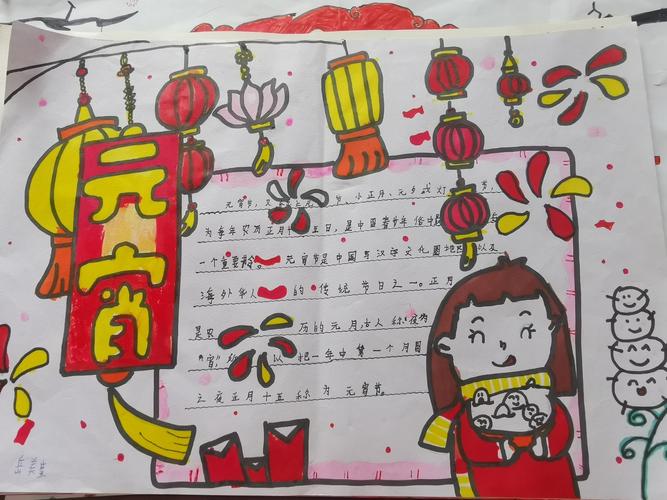 元宵
元宵节，又 节、小正月、元夕或灯 节，
为每年农历正月十五日，是中国春节年俗中
一个重要 。元宵节是中国与汉字文化圈地区以及
海外华人 的传统节日之一。正月
是农 历的元月，古人称"夜"为
"宵"， 以 把一年中第一个月圆
之夜正月十五称为元宵节。